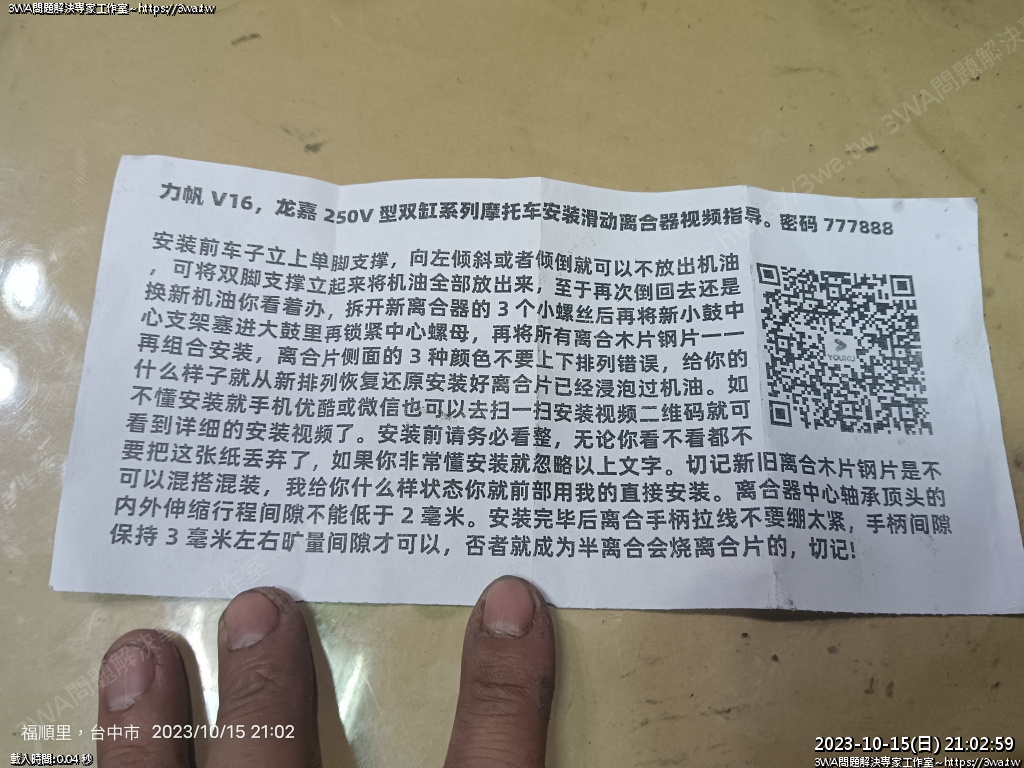 3WA問題解決專家工作室~https://3wa.tw
3WA問題解決專家工作室~https://3wa.tw
力帆 V16，龙嘉 250V 型双缸系列摩托车安装滑动离合器视频指导。密码 777888
安装前车子立上单脚支撑，向左倾斜或者倾倒就可以不放出机油
，可将双脚支撑立起来将机油全部放出来，至于再次倒回去还是
换新机油你看着办，拆开新离合器的 3 个小螺丝后再将新小鼓中
心支架塞进大鼓里再锁紧中心螺母，再将所有离合木片钢片一一
再组合安装，离合片侧面的 3 种颜色不要上下排列错误，给你的
什么样子就从新排列恢复还原安装好离合片已经浸泡过机油。如
不懂安装就手机优酷或微信也可以去扫一扫安装视频二维码就可
看到详细的安装视频了。安装前请务必看整，无论你看不看都不
要把这张纸丢弃了，如果你非常懂安装就忽略以上文字。切记新旧离合木片钢片是不
可以混搭混装，我给你什么样状态你就前部用我的直接安装。离合器中心轴承顶头的
内外伸缩行程间隙不能低于 2 毫米。安装完毕后离合手柄拉线不要绷太紧，手柄间隙
保持 3 毫米左右旷量间隙才可以，否者就成为半离合会烧离合片的，切记!
YOUKU
福順里，台中市 2023/10/15 21:02
載入時間:0.04 秒
2023-10-15(日) 21:02:59
3WA問題解決專家工作室~https://3wa.tw